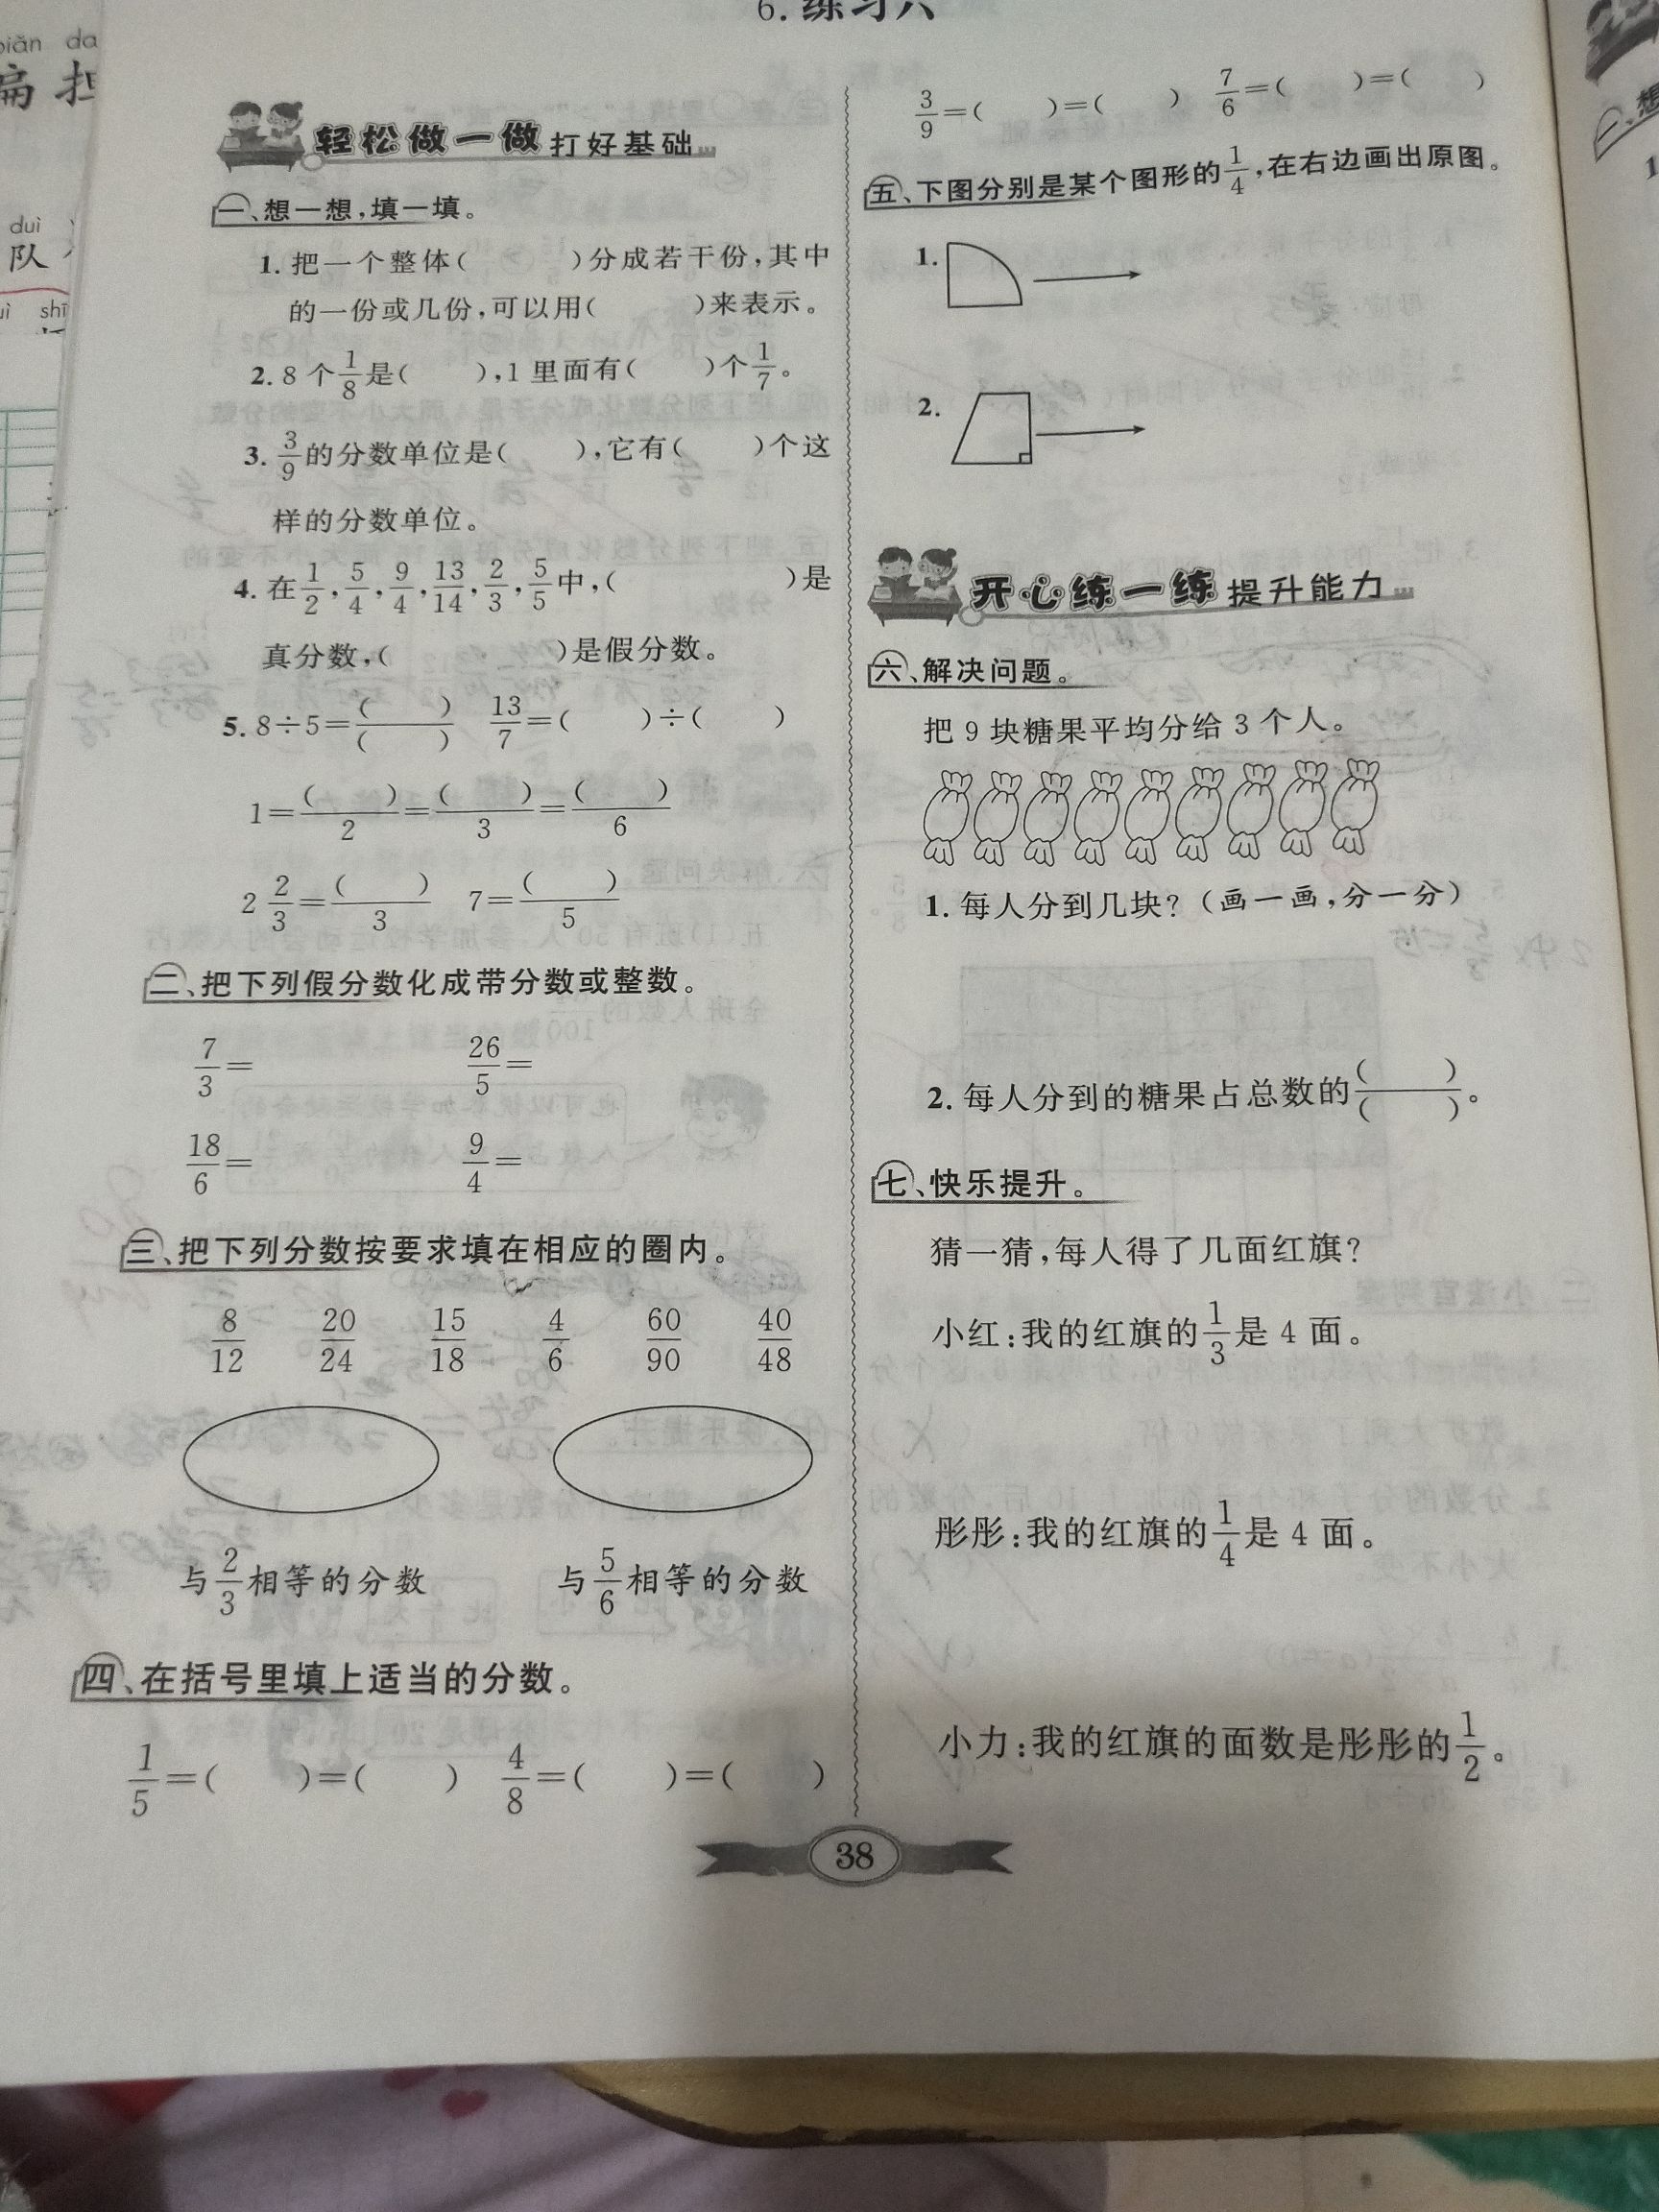 biǎn da
扁 担
duì
队
shī
6. 练习六
轻松做一做 打好基础
一、想一想,填一填。
1. 把一个整体( )分成若干份,其中
的一份或几份,可以用( )来表示。
2. 8 个 1/8 是( ),1 里面有( )个 1/7。
3. 3/9 的分数单位是( ),它有( )个这
样的分数单位。
4. 在 1/2, 5/4, 9/4, 13/14, 2/3, 5/5 中,( )是
真分数,( )是假分数。
5. 8÷5=( )/( ) 13/7=( )÷( )
1=( )/2=( )/3=( )/6
2 2/3=( )/3 7=( )/5
二、把下列假分数化成带分数或整数。
7/3= 26/5=
18/6= 9/4=
三、把下列分数按要求填在相应的圈内。
8/12 20/24 15/18 4/6 60/90 40/48
与 2/3 相等的分数 与 5/6 相等的分数
四、在括号里填上适当的分数。
1/5=( )=( ) 4/8=( )=( )
3/9=( )=( ) 7/6=( )=( )
五、下图分别是某个图形的 1/4,在右边画出原图。
1.
2.
开心练一练 提升能力
六、解决问题。
把 9 块糖果平均分给 3 个人。
1. 每人分到几块?(画一画,分一分)
2. 每人分到的糖果占总数的( )/( )。
七、快乐提升。
猜一猜,每人得了几面红旗?
小红:我的红旗的 1/3 是 4 面。
彤彤:我的红旗的 1/4 是 4 面。
小力:我的红旗的面数是彤彤的 1/2。
38
一、想
1